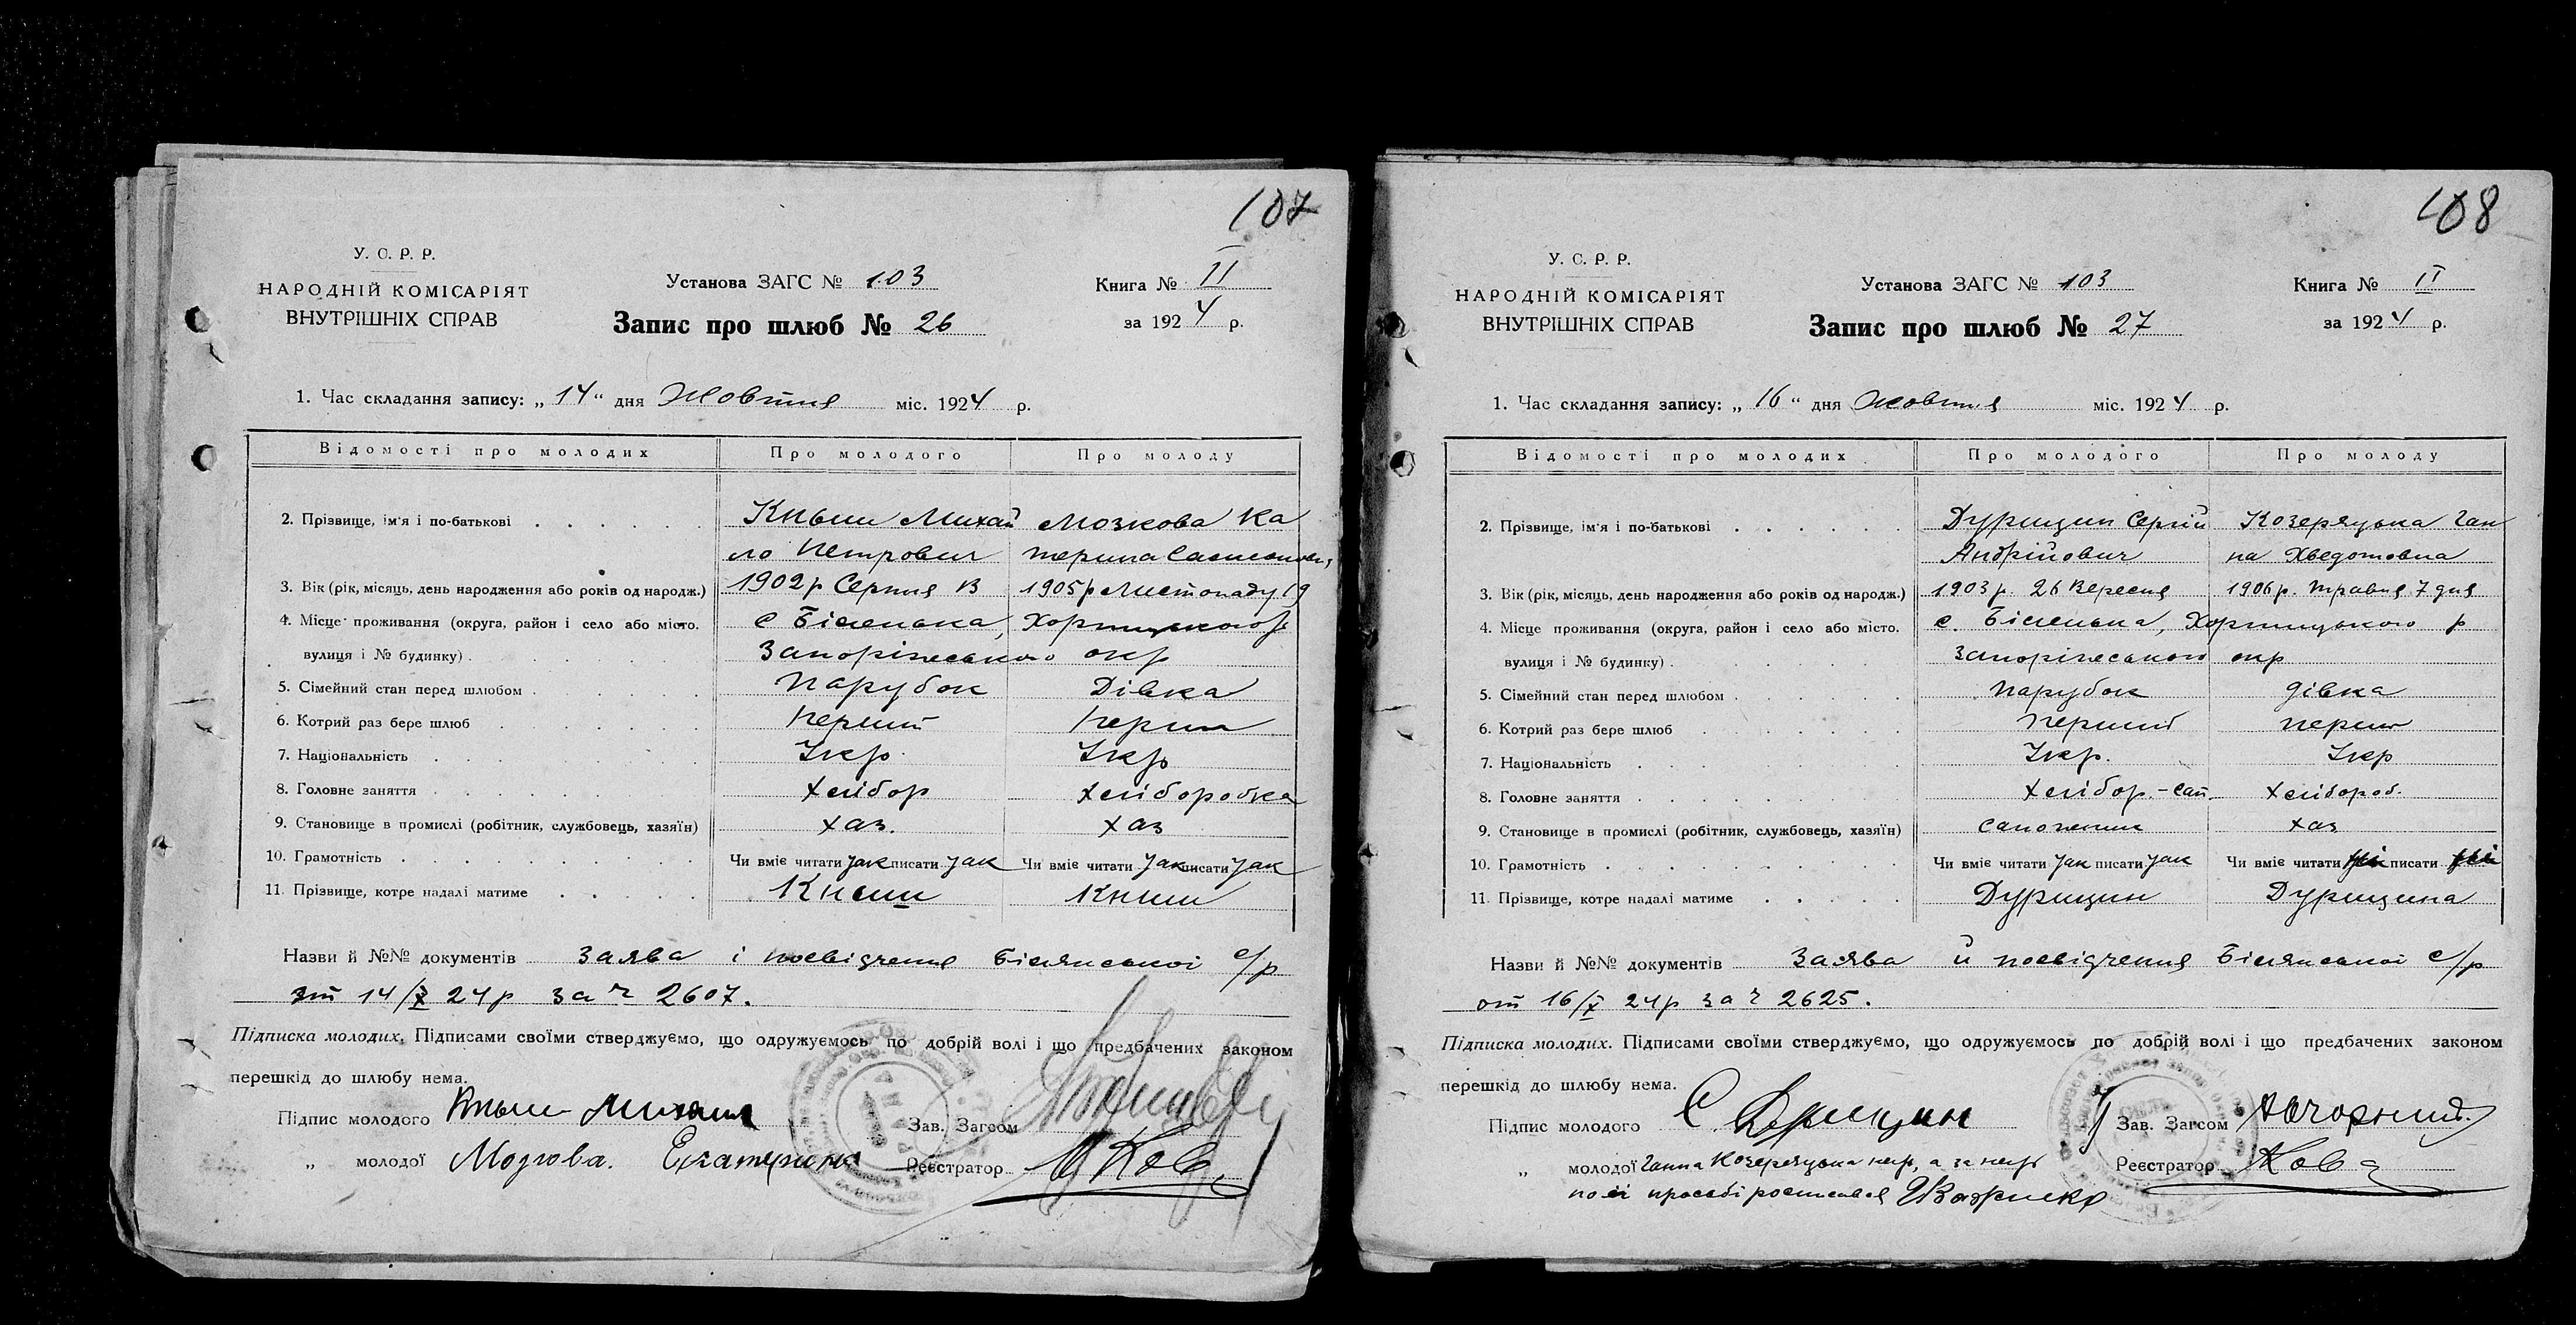 107
У. С. Р. Р.
НАРОДНІЙ КОМІСАРІЯТ
ВНУТРІШНІХ СПРАВ
Установа ЗАГС № 103
Запис про шлюб № 26
Книга № II
за 1924 р.
1. Час складання запису: „14“ дня Жовтня міс. 1924 р.
Відомості про молодих Про молодого Про молоду
2. Прізвище, ім'я і по-батькові Кныш Михай Мозкова Ка
ло Петрович терина
3. Вік (рік, місяць, день народження або років од народж.) 1902 р Серпня 1905 р Листопаду 19
4. Місце проживання (округа, район і село або місто. с Біленька, Хортицького р
вулиця і № будинку). Запоріжського окр
5. Сімейний стан перед шлюбом Парубок Дівка
6. Котрий раз бере шлюб перший перш
7. Національність Укр. Укр
8. Головне заняття хлібор хліборобка
9. Становище в промислі (робітник, службовець, хазяїн) хаз. хаз
10. Грамотність Чи вміє читати так писати так Чи вміє читати так писати так
11. Прізвище, котре надалі матиме Книш Книш
Назви й №№ документів Заява і посвідчення Білянської с/р
від 14/X 24 р за ч 2607.
Підписка молодих. Підписами своїми стверджуємо, що одружуємось по добрій волі і що предбачених законом
перешкід до шлюбу нема.
Підпис молодого Кныш Михаил Зав. Загсом
„ молодої Мозгова. Екатерина Реєстратор
108
У. С. Р. Р.
НАРОДНІЙ КОМІСАРІЯТ
ВНУТРІШНІХ СПРАВ
Установа ЗАГС № 103
Запис про шлюб № 27
Книга № II
за 1924 р.
1. Час складання запису: „16“ дня жовтня міс. 1924 р.
Відомості про молодих Про молодого Про молоду
2. Прізвище, ім'я і по-батькові Дурицин Сергій Козеряцька Ган
Андрійович на Хведотовна
3. Вік (рік, місяць, день народження або років од народж.) 1903 р. 26 Вересня 1906 р. травня 7 дня
4. Місце проживання (округа, район і село або місто. с. Біленька, Хортицького р
вулиця і № будинку). Запоріжського окр
5. Сімейний стан перед шлюбом парубок дівка
6. Котрий раз бере шлюб перший перш
7. Національність Укр. Укр
8. Головне заняття хлібор.-сап. хлібороб.
9. Становище в промислі (робітник, службовець, хазяїн) сапожник хаз
10. Грамотність Чи вміє читати так писати так Чи вміє читати писати
11. Прізвище, котре надалі матиме Дурицин Дурицина
Назви й №№ документів Заява й посвідчення Білянської с/р
от 16/X 24 р за ч 2625.
Підписка молодих. Підписами своїми стверджуємо, що одружуємось по добрій волі і що предбачених законом
перешкід до шлюбу нема.
Підпис молодого С Дурицин Зав. Загсом
„ молодої Ганна Козеряцька негр, а за негр Реєстратор
по її просьбі росписався